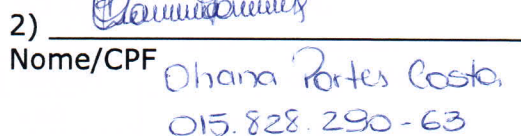 2)
Nome/CPF Ohana Portes Costa
015.828.290-63